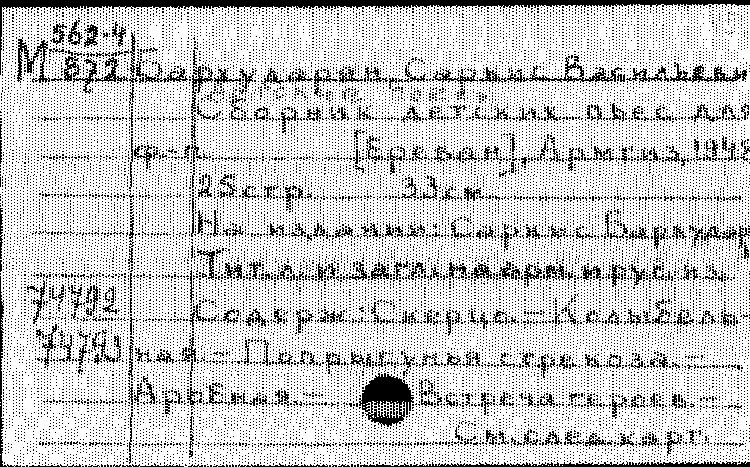 М 562-4
872
Бархударян, Саркис Васильеви
Сборник детских пьес для
ф-п. [Ереван], Армгиз, 1948
25 стр. 33 см.
На издании: Саркис Бархудар
Тит. л. и загл. на арм. и рус. яз.
74792 Содерж.: Скерцо. – Колыбель-
74793 ная. – Попрыгунья стрекоза. –
– Встреча героев. –
См. след. карт.